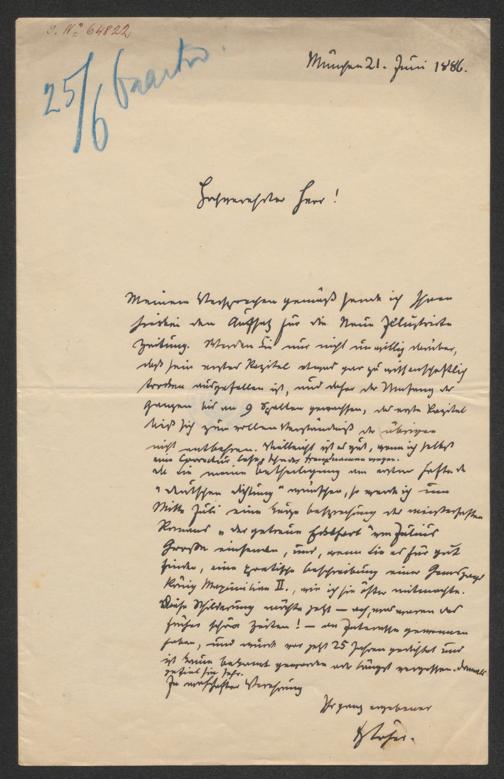 J. No 64822
25/6
München 21. Juni 1886.
Hochverehrter Herr!
Meinem Versprechen gemäß sende ich Ihnen
hierbei den Aufsatz für die Neue Illustrirte
Zeitung. Werden Sie nur nicht unwillig darüber,
daß sein erstes Kapitel etwas gar zu wissenschaftlich
trocken ausgefallen ist, und daher der Umfang des
ganzen bis an 9 Spalten gewachsen, das erste Kapitel
ließ sich zum vollen Verständniß der übrigen
nicht entbehren. Vielleicht ist es gut, wenn ich selbst
eine Correctur
Da Sie meine Betheiligung am ersten Hefte der
"deutschen Dichtung" wünschen, so werde ich um
Mitte Juli eine kurze Besprechung des meisterhaften
Romans "der getreue Eckart" von Julius
Grosse einsenden, und, wenn Sie es für gut
finden, eine poetische Beschreibung einer Gemsjagd
König Maximilian II., wie ich sie öfter mitmachte.
Diese Schilderung möchte jetzt — ach, was waren das
früher schöne Zeiten! — an Interesse gewonnen
haben, und wurde vor jetzt 25 Jahren gedichtet und
ist kaum bekannt geworden oder längst vergessen. Damals
gefiel sie sehr.
In Verehrung
Ihr ganz ergebener